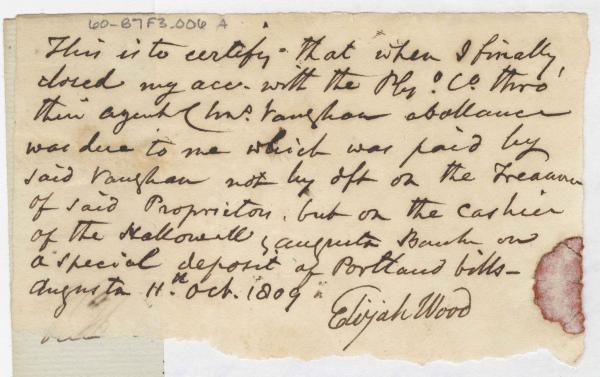 60-B7F3.006 A
This is to certify that when I finally
closed my acc. with the Ply.o Co. thro'
their agent Chas. Vaughan a ballance
was due to me which was paid by
said Vaughan not by dft on the Treasurer
of said Proprietors. but on the cashier
of the Hallowell & augusta Bank on
a special deposit of Portland bills—
Augusta 11.th Oct. 1809
Elijah Wood